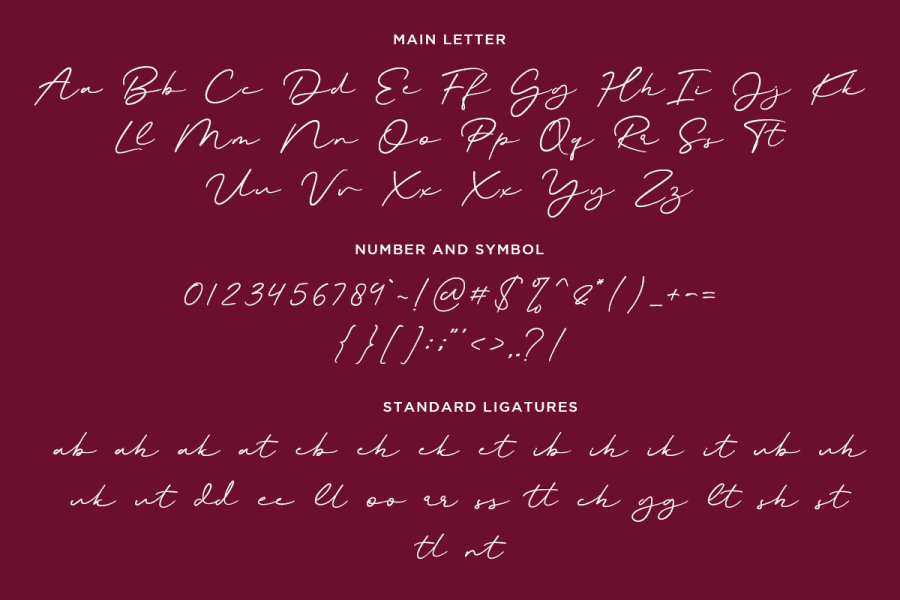 MAIN LETTER
Aa Bb Cc Dd Ee Ff Gg Hh Ii Jj Kk
Ll Mm Nn Oo Pp Qq Rr Ss Tt
Uu Vv Xx Xx Yy Zz
NUMBER AND SYMBOL
0123456789`~!@#$%^&*()_+-=
{}[]:;"'<>,.?/
STANDARD LIGATURES
ab ah ak at eb eh ek et ib ih ik it ub uh
uk ut dd ee ll oo rr ss tt ch gg lt sh st
tl nt